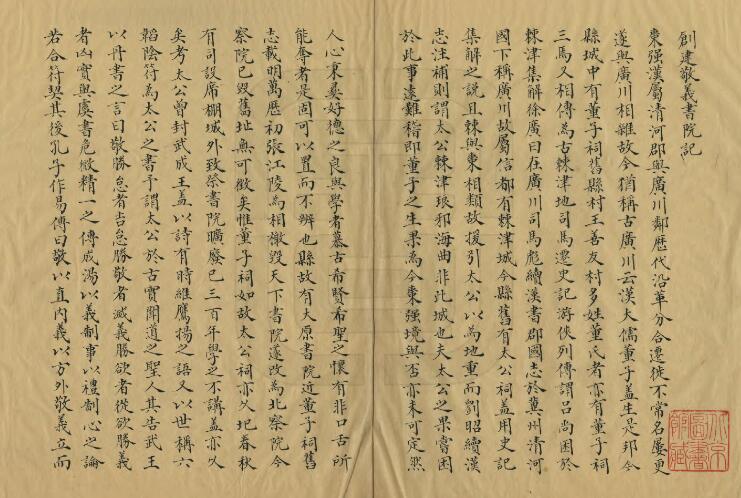 創建敬義書院記
棗强漢屬清河郡與廣川鄰歷代沿革分合遷徙不常名屢更
遂與廣川相雜故今猶稱古廣川云漢大儒董子盖生是邦今
縣城中有董子祠舊縣村王善友村多姓董氏者亦有董子祠
三焉又相傳為古棘津地司馬遷史記游俠列傳謂吕尚困於
棘津集解徐廣曰在廣川司馬彪續漢書郡國志於冀州清河
國下稱廣川故屬信都有棘津城今縣舊有太公祠盖用史記
集解之說且棘與棗相類故援引太公以為地重而劉昭續漢
志注補則謂太公棘津琅邪海曲非此城也夫太公之果嘗困
於此事遠難稽即董子之生果為今棗强境與否亦未可定然
人心秉彝好德之良與學者慕古希賢希聖之懷有非口舌所
能奪者是固可以置而不辨也縣故有大原書院近董子祠舊
志載明萬歷初張江陵為相檄毀天下書院遂改為北察院今
察院已毀舊址無可徵矣惟董子祠如故太公祠亦久圯春秋
有司設席棚城外致祭書院曠廢已三百年學之不講盖亦久
矣考太公曾封武成王盖以詩有時維鷹揚之語又以世稱六
韜陰符為太公之書予謂太公於古實聞道之聖人其告武王
以丹書之言曰敬勝怠者吉怠勝敬者滅義勝欲者從欲勝義
者凶實與虞書危微精一之傳成湯以義制事以禮制心之論
若合符契其後孔子作易傳曰敬以直內義以方外敬義立而